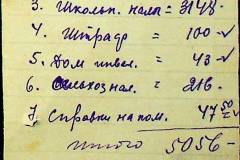 3. Школьн. налог = 3148.
4. Штраф = 100 ✓
5. Дом инвал. = 43 ✓
6. Сельхоз нал. = 216.
7. Справки на пом. 47 50 ✓
Итого 5056 -